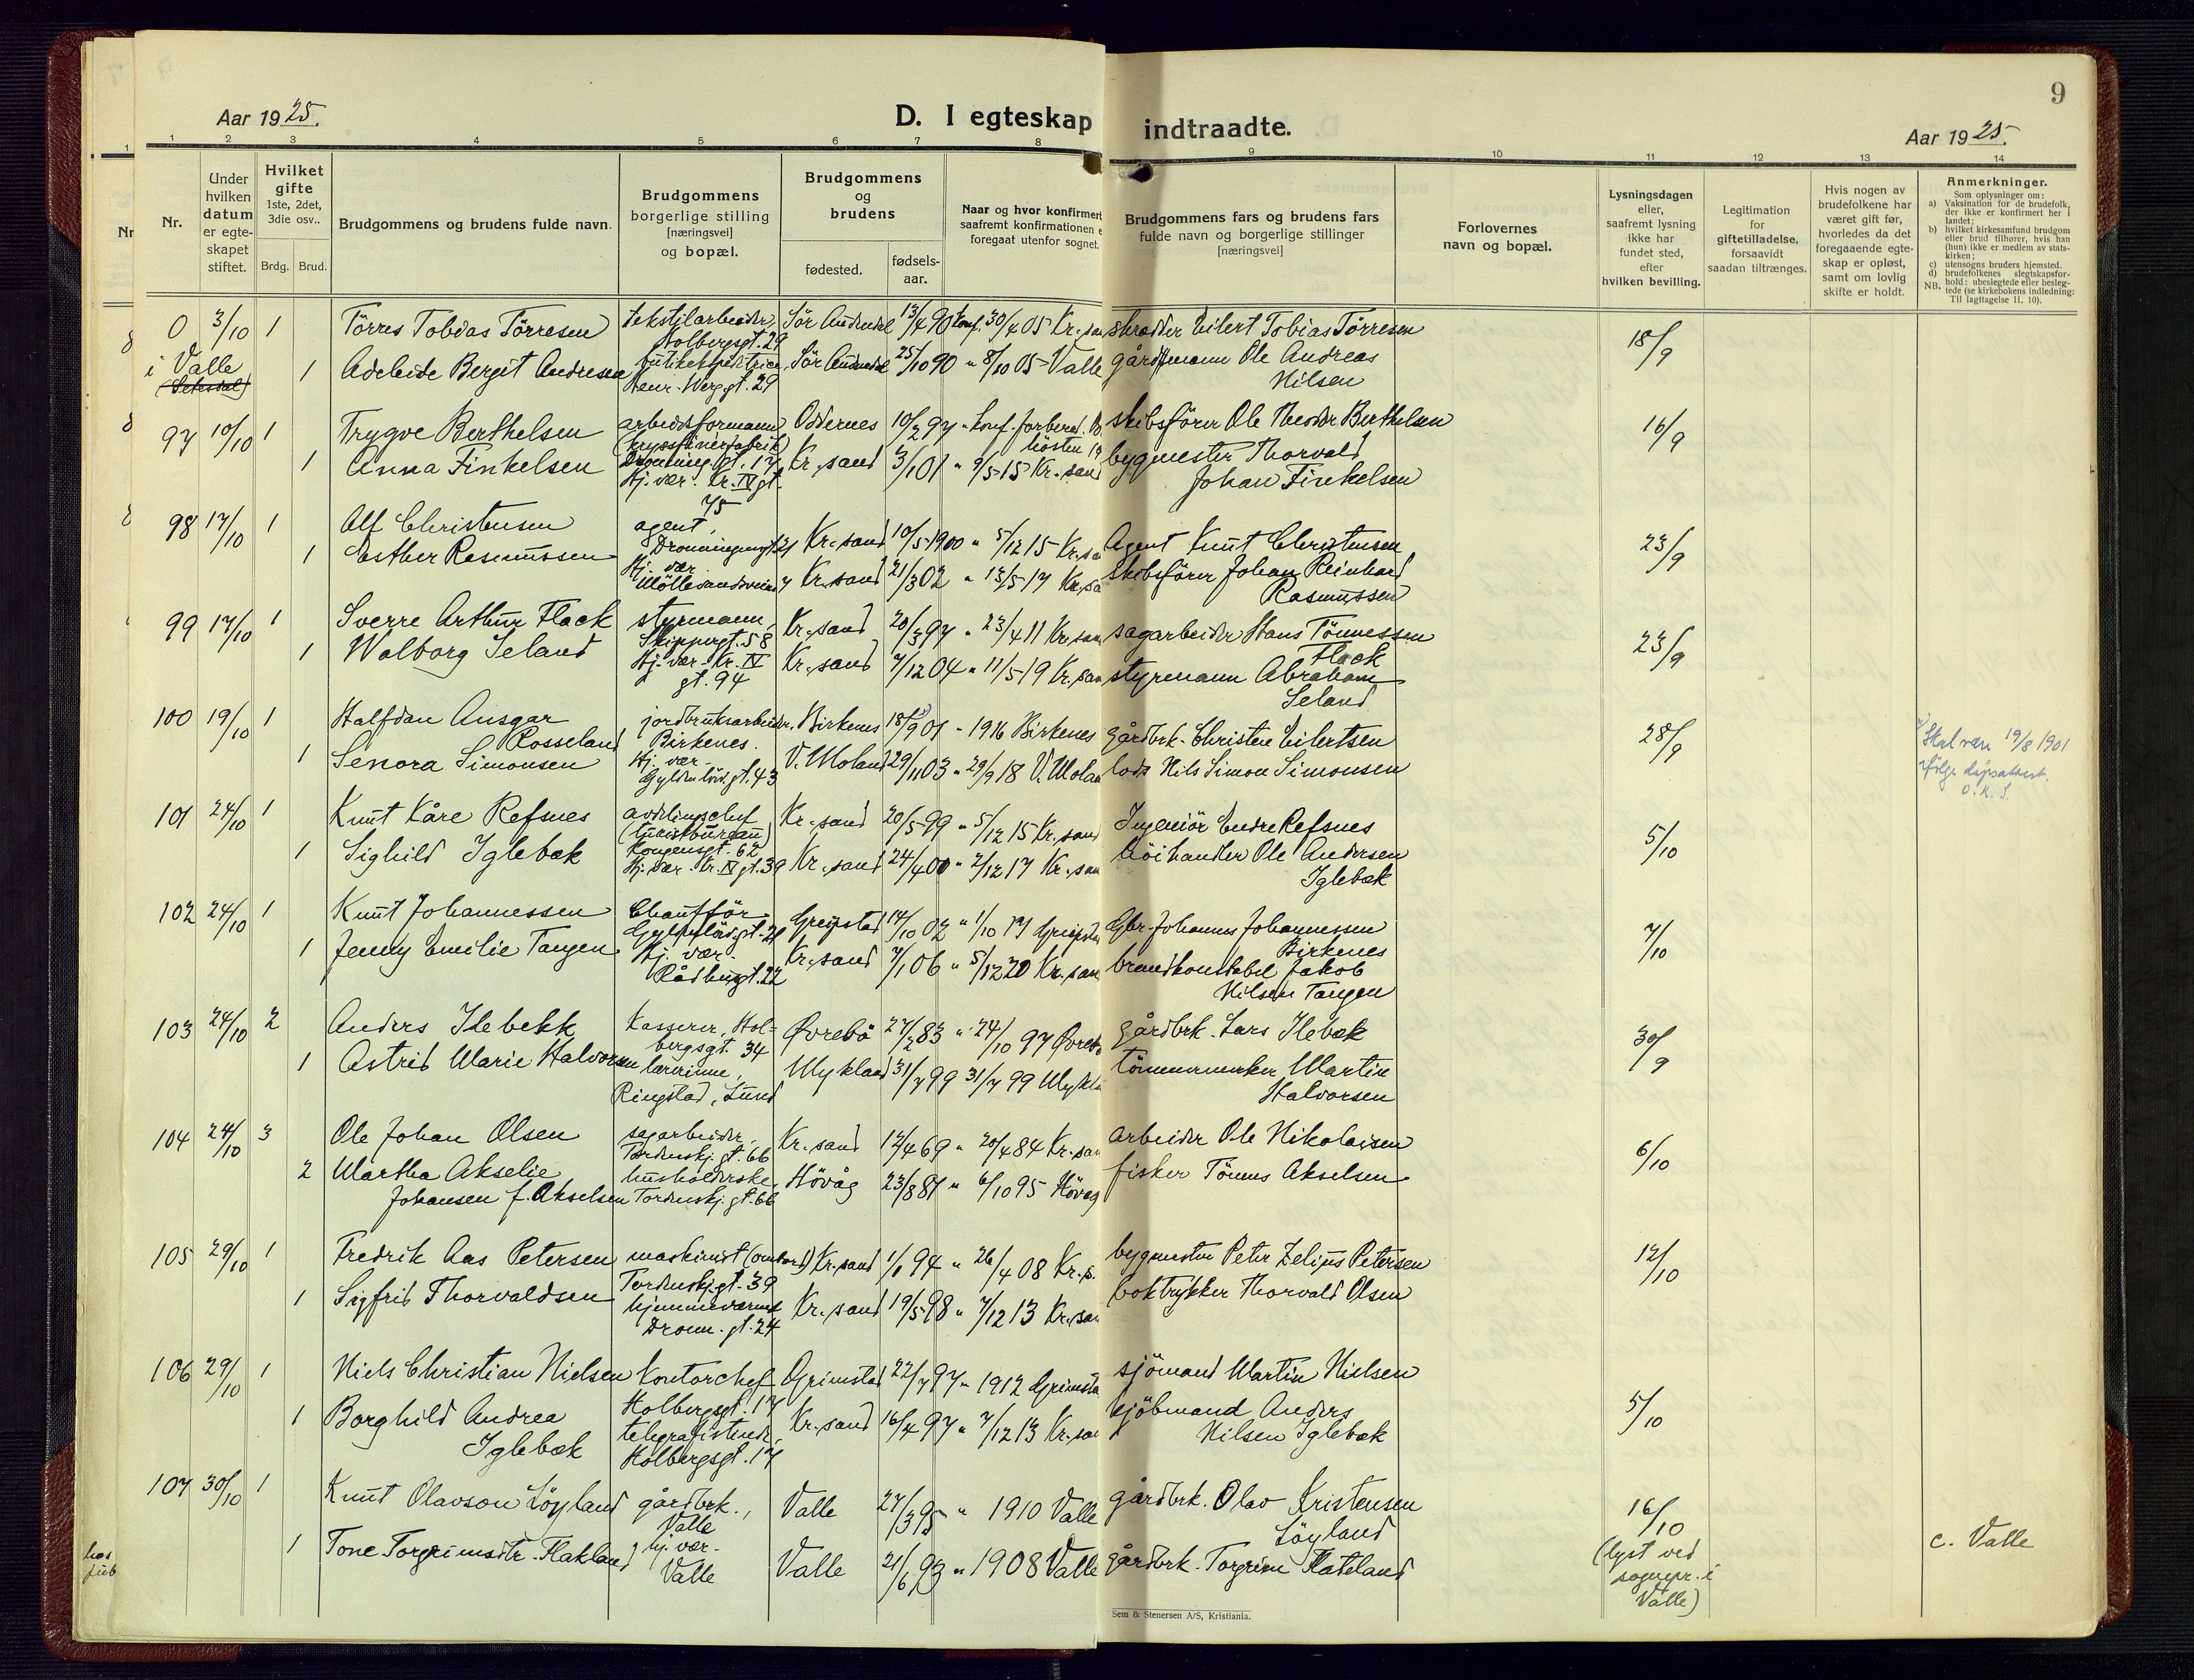 Aar 1925.
D. I egteskap indtraadte.
9
Aar 1925.
1 2 3 4 5 6 7 8 9 10 11 12 13 14
Nr.
Under hvilken datum er egteskapet stiftet.
Hvilket gifte 1ste, 2det, 3die osv..
Brdg. Brud.
Brudgommens og brudens fulde navn.
Brudgommens borgerlige stilling [næringsvei] og bopæl.
Brudgommens og brudens
fødested.
fødsels-aar.
Naar og hvor konfirmert
saafremt konfirmationen e
foregaat utenfor sognet.
Brudgommens fars og brudens fars
fulde navn og borgerlige stillinger
[næringsvei]
Forlovernes
navn og bopæl.
Lysningsdagen
eller,
saafremt lysning
ikke har
fundet sted,
efter
hvilken bevilling.
Legitimation
for
giftetilladelse,
forsaavidt
saadan tiltrænges.
Hvis nogen av
brudefolkene har
været gift før,
hvorledes da det
foregaaende egte-
skap er opløst,
samt om lovlig
skifte er holdt.
Anmerkninger.
Som oplysninger om:
a) Vaksination for de brudefolk,
der ikke er konfirmert her i
landet;
b) hvilket kirkesamfund brudgom
eller brud tilhører, hvis han
(hun) ikke er medlem av stats-
kirken;
c) utensogns bruders hjemsted.
d) brudefolkenes slegtskapsfor-
hold: ubeslegtede eller besleg-
NB. tede (se kirkebokens indledning:
Til iagttagelse II. 10).
0 3/10 1 Törres Tobias Törresen tekstilarbeider, Holbergsgt. 29 Sör Audnedal 13/4 90 konf. 30/4 05 Kr.sa skrædder Eilert Tobias Törresen 18/9
i Valle (Setesdal) 1 Adeleide Bergit Andresen butikekspeditrice, Henr. Werg.gt. 29 Sör Audnedal 25/10 90 " 8/10 05 Valle gårdmann Ole Andreas Nilsen
97 10/10 1 Trygve Berthelsen arbeidsformann Oddernes 10/2 97 " konf. forbered. hösten 19 skibsförer Ole Theodor Berthelsen 16/9
1 Anna Finkelsen Hj. vær. Kr. IV gt. 75 Kr.sand 3/1 01 " 9/5 15 Kr.sand bygmester Thorvald Johan Finkelsen
98 17/10 1 Alf Christensen agent, Dronningensgt. 21 Kr.sand 10/5 1900 " 5/12 15 Kr.sa Agent Knut Christensen 23/9
1 Esther Rasmussen Hj. vær. Möllevandsveien 7 Kr.sand 21/3 02 " 13/5 17 Kr.sa Skibsförer Johan Reinhard Rasmussen
99 17/10 1 Sverre Arthur Flack styrmann, Skippergt. 58 Kr.sand 20/3 97 " 23/4 11 Kr.san sagarbeider Hans Tönnessen Flack 23/9
1 Walborg Seland Hj. vær. Kr. IV gt. 94 Kr.sand 7/12 04 " 11/5 19 Kr.san styrmann Abraham Seland
100 19/10 1 Halfdan Ansgar Rosseland jordbruksarbeider, Birkenes. Birkenes 18/9 01 " 1916 Birkenes gårdbrk. Christen Eilertsen 28/9 Skal være 19/8 1901 ifölge dåpsattest. O.K.S.
1 Senora Simonsen Hj. vær. Gyldenlövs gt. 43 V. Moland 29/11 03 " 29/9 18 V. Molan lods Nils Simon Simonsen
101 24/10 1 Knut Kåre Refsnes avdelingschef (turistbureau) Kongensgt. 62 Kr.sand 20/5 99 " 5/12 15 Kr.sand Ingeniör Endre Refsnes 5/10
1 Sighild Iglebæk Hj. vær. Kr. IV gt. 39 Kr.sand 24/4 00 " 2/12 17 Kr.san höihandler Ole Andersen Iglebæk
102 24/10 1 Knut Johannessen Chaufför Gyldenlövsgt. 21 Greipstad 14/10 02 " 1/10 17 Greipsta Gbr. Johannes Johannessen Birkenes 7/10
1 Jenny Emilie Tangen Hj. vær. Rådhusgt. 22 Kr.sand 7/1 06 " 5/12 20 Kr.san brandkonstabel Jakob Nilsen Tangen
103 24/10 2 Anders Ilebekk Kasserer, Hol- bergsgt. 34 Øvrebö 27/2 83 " 24/10 97 Øvreb gårdbrk. Lars Ilebæk 30/9
1 Astrid Marie Halvorsen lærerinne, Ringstad, Lund Mykland 31/7 99 31/7 99 Mykla tömmermerker Martin Halvorsen
104 24/10 3 Ole Johan Olsen sagarbeider, Tordenskj. gt. 66 Kr.sand 12/4 69 " 20/4 84 Kr.san Arbeider Ole Nikolaisen 6/10
2 Martha Akselie Johansen f. Akselsen husholderske, Tordenskj. gt. 66 Hövåg 23/8 81 " 6/10 95 Hövåg fisker Tönnes Akselsen
105 29/10 1 Fredrik Aas Petersen maskinist (ombord) Tordenskj.gt. 39 Kr.sand 1/1 94 " 26/4 08 Kr.s. bygmester Peter Zelius Petersen 12/10
1 Sigfrid Thorvaldsen hjemmeværende Dronn. gt. 24 Kr.sand 19/5 98 " 7/12 13 Kr.san boktrykker Thorvald Olsen
106 29/10 1 Niels Christian Nielsen Kontorchef Holbergsgt. 17 Grimstad 22/7 97 " 1912 Grimsta sjömand Martin Nielsen 5/10
1 Borghild Andrea Iglebæk telegrafistinde, Holbergsgt. 17 Kr.sand 16/4 97 " 7/12 13 Kr.san kjöbmand Anders Nilsen Iglebæk
107 30/10 1 Knut Olavson Löyland gårdbrk., Valle Valle 27/3 95 " 1910 Valle gårdbrk. Olav Kristensen Löyland 16/10 (lyst ved sognepr. i Valle) c. Valle
1 Tone Torgrimsdtr. Flakland hj. vær. Valle Valle 21/6 93 " 1908 Valle gårdbrk. Torgrim Flateland
Sem & Stenersen A/S, Kristiania.